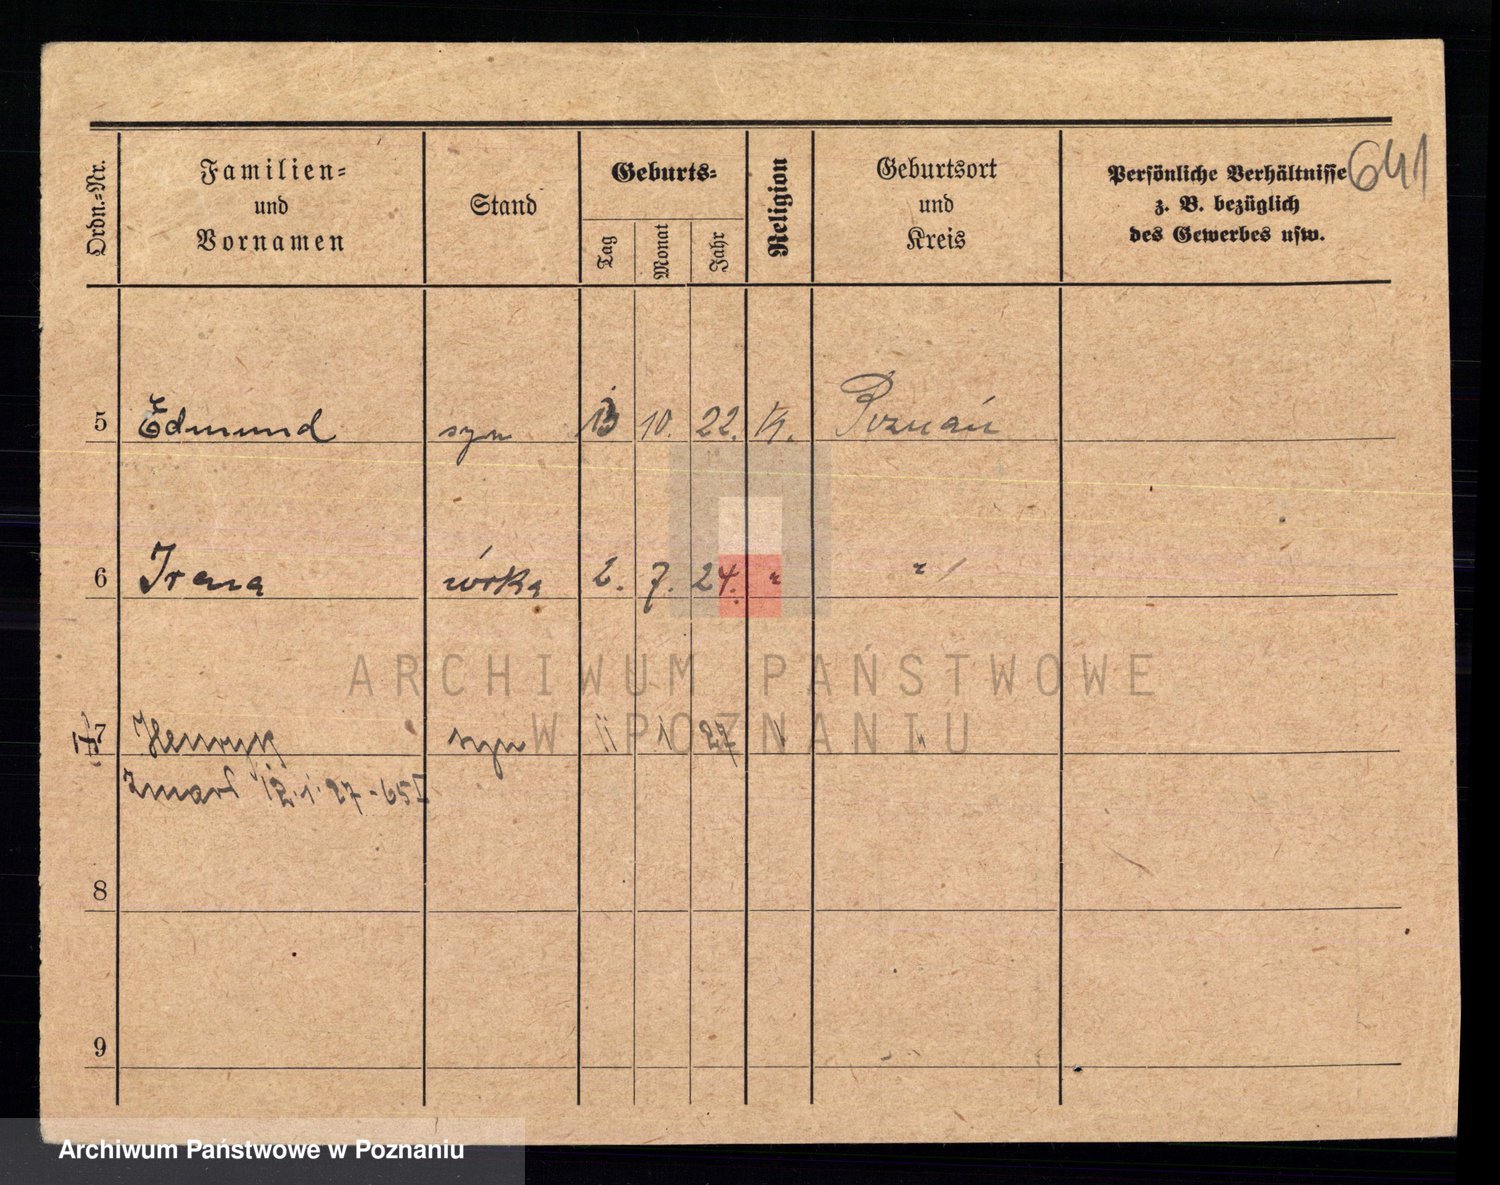 641
Ordn.-Nr.
Familien-
und
Vornamen
Stand
Geburts-
Tag
Monat
Jahr
Religion
Geburtsort
und
Kreis
Persönliche Verhältnisse
z. B. bezüglich
des Gewerbes usw.
5 Edmund syn 13 10. 22. K. Poznań
6 Irena córka 2. 7. 24. " "
7 Henryk syn 11 1 27 " "
zmarł 12.1.27-65I
8
9
ARCHIWUM PAŃSTWOWE
W POZNANIU
Archiwum Państwowe w Poznaniu